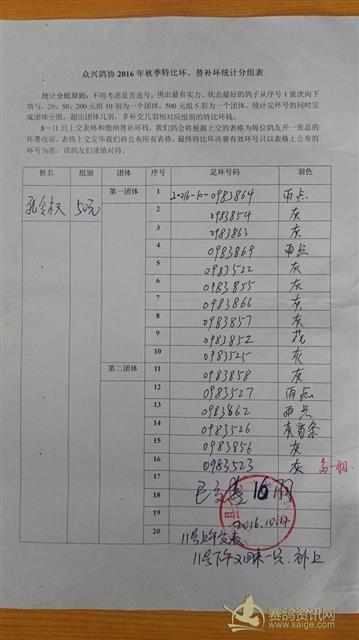 众兴鸽协 2016 年秋季特比环、替补环统计分组表
统计分组原则：不用考虑是否连号，携出最有实力、状态最好的鸽子从序号 1 依次向下
填写。20、50、200 元组 10 羽为一个团体，500 元组 5 羽为一个团体，统计完环号的同时完
成团体分组，超出团体几羽，多补交几羽相对应组别的特比环钱。
8－11 日上交表格和缴纳替补环钱，我们鸽会将根据上交的表格为每位鸽友开一张总的
环费收据。表格上交完毕我们将公布所有表格，最终特比环决赛有效环号只以表格上公布的
环号为准。请鸽友们谨慎对待。
姓名 组别 团体 序号 足环号码 羽色
孔令权 50元 第一团体 1 2016-10-0983864 雨点
2 0983854 灰
3 0983863 灰
4 0983869 雨点
5 0983522 灰
6 0983855 灰
7 0983866 灰
8 0983857 灰
9 0983852 花
10 0983525 灰
第二团体 11 0983858 灰
12 0983527 雨点
13 0983862 雨点
14 0983526 灰
15 0983856 灰
16 0983523 灰 多一羽
17
18 已交 16 羽
19 2016.10.11
20 11号上午交表
11号下午 一只 补上
赛鸽资讯网
www.saige.com